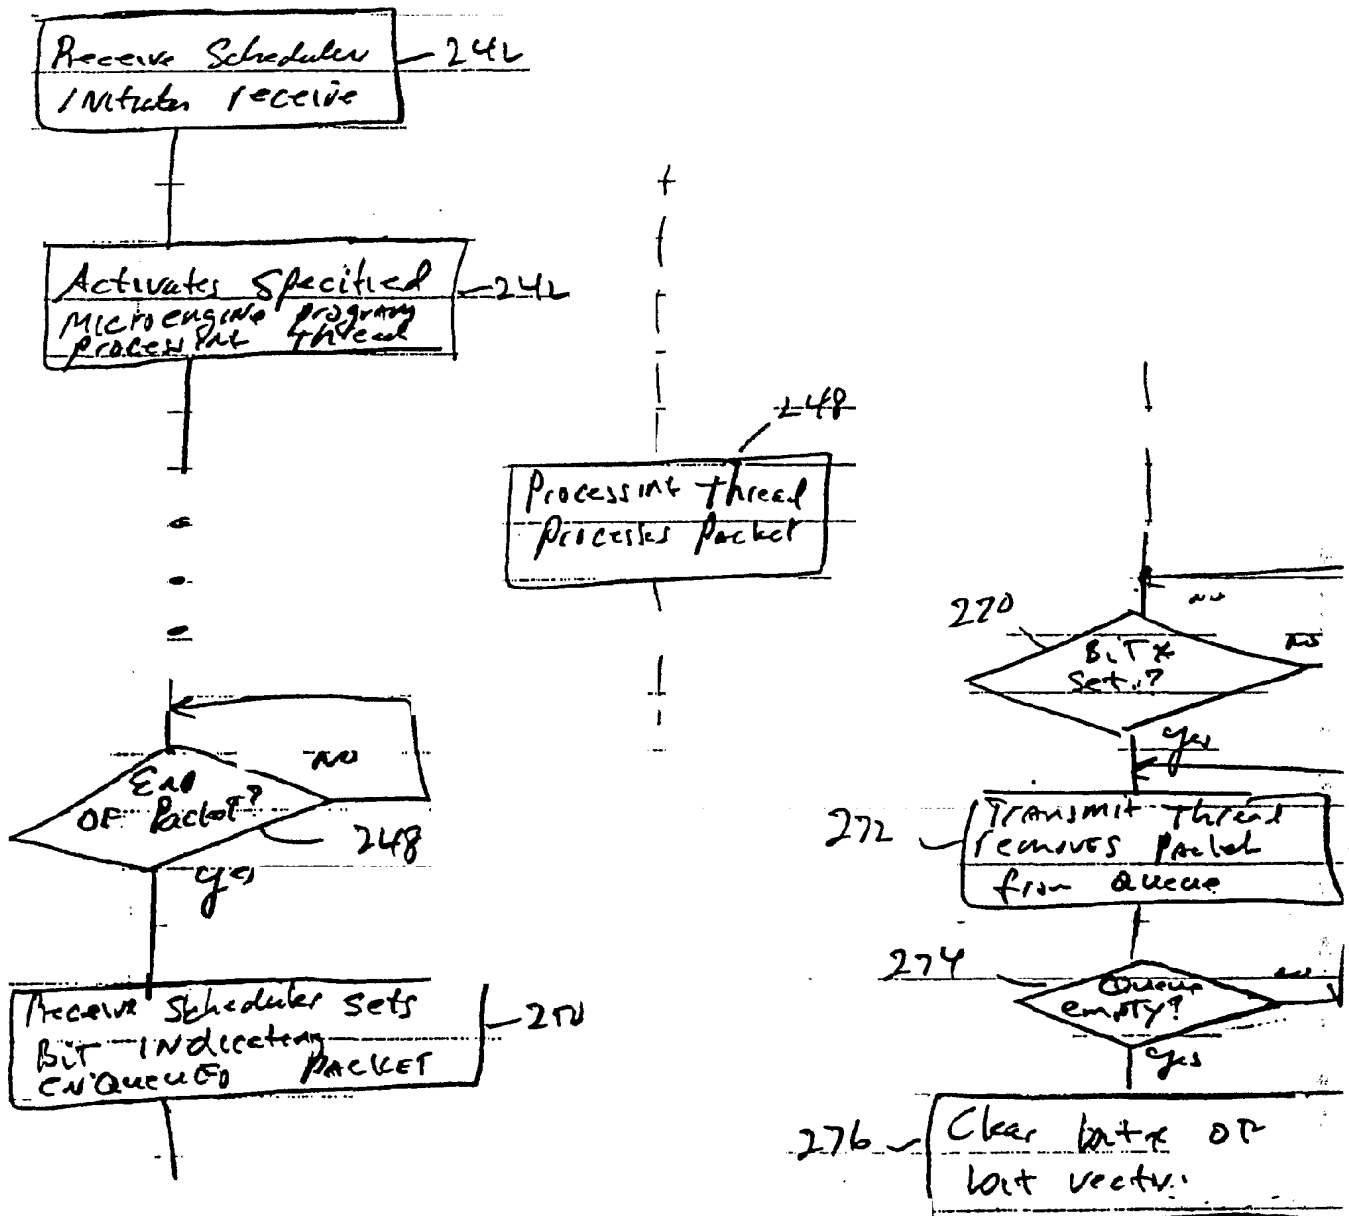 Receive Scheduler
Initiates receive
242
Activates Specified
Microengine program
processing thread
242
248
Processing thread
Processes Packet
End
OF Packet?
no
248
yes
Receive Scheduler sets
BIT INdicating
ENQUEUED PACKET
250
no
270
BIT x
set?
no
yes
272
Transmit thread
removes packet
from Queue
274
Queue
empty?
no
yes
276
Clear bit x OF
bit vector